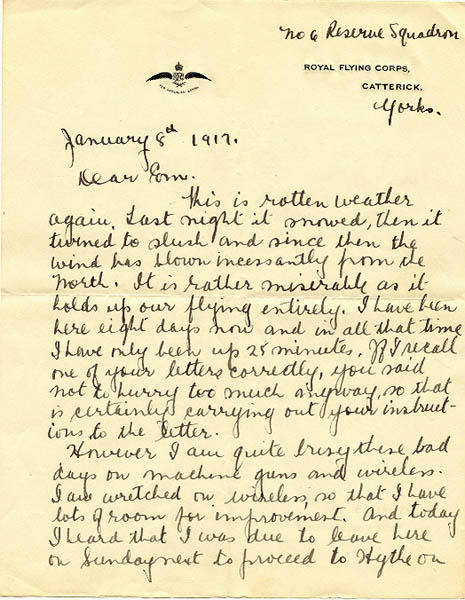 No 6 Reserve Squadron
ROYAL FLYING CORPS,
CATTERICK.
Yorks.
January 8th 1917.
Dear Em.
This is rotten weather
again. Last night it snowed, then it
turned to slush and since then the
wind has blown incessantly from the
North. It is rather miserable as it
holds up our flying entirely. I have been
here eight days now and in all that time
I have only been up 25 minutes. If I recall
one of your letters correctly, you said
not to hurry too much anyway, so that
is certainly carrying out your instruct-
ions to the letter.
However I am quite busy these bad
days on machine guns and wireless.
I am wretched on wireless, so that I have
lots of room for improvement. And today
I heard that I was due to leave here
on Sunday next to proceed to Hythe on